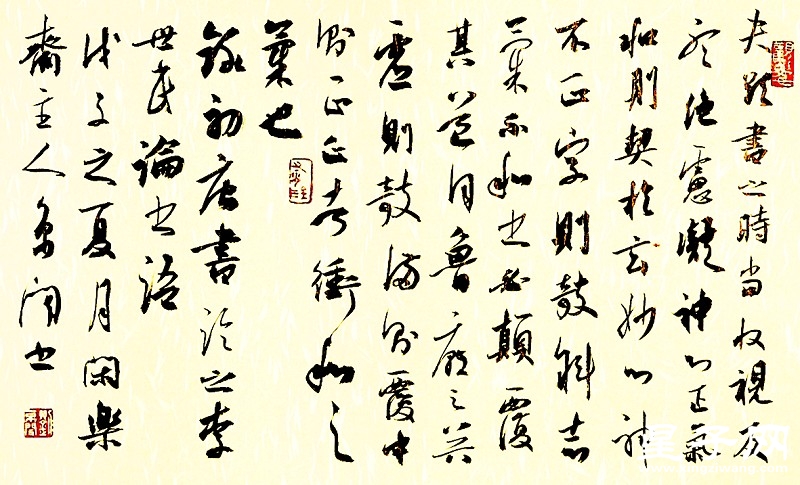 夫欲書之時当收視反
听絕慮凝神心正氣
和則契於玄妙心神
不正字則敧斜志
氣不和书必顛覆
其道同魯廟之器
虛則敧滿則覆中
則正正者衝和之
也
錄初唐書論之李
世民論书語
戊子之夏月閑樂
齋主人书